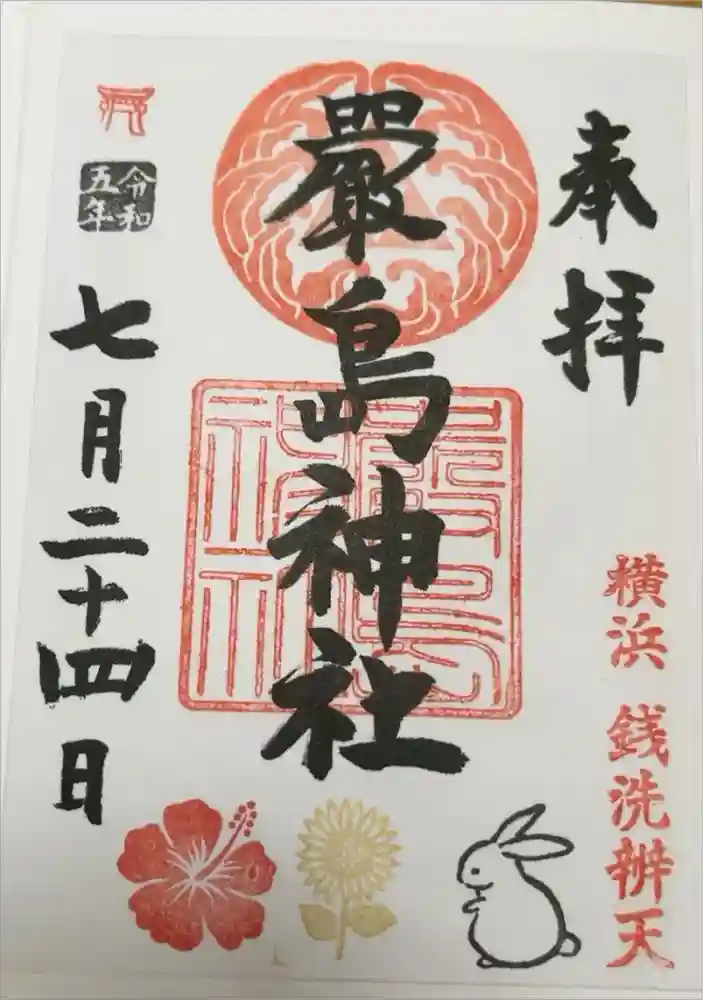 奉拝
横浜 銭洗辨天
嚴島神社
嚴島神社
令和五年
七月二十四日